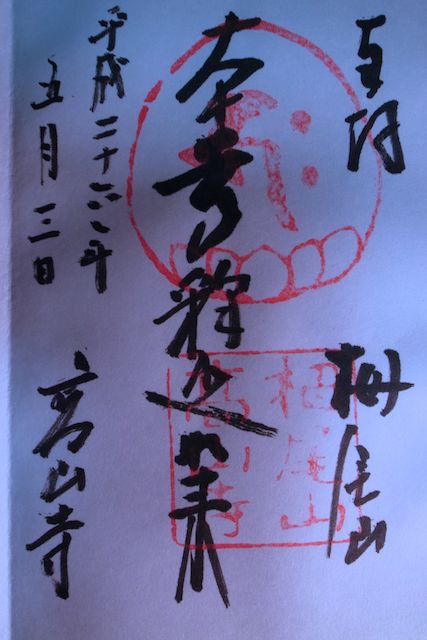 奉拝
栂尾山
本尊釋迦如来
平成二十六年
五月三日
高山寺
栂尾山
高山寺